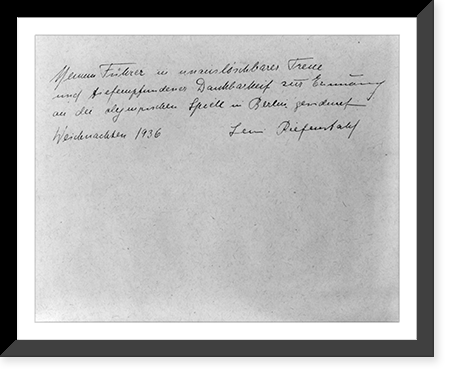 Meinem Führer in unauslöschbarer Treue
und tiefempfundener Dankbarkeit zur Erinnerung
an die olympischen Spiele in Berlin gewidmet
Weihnachten 1936 Leni Riefenstahl